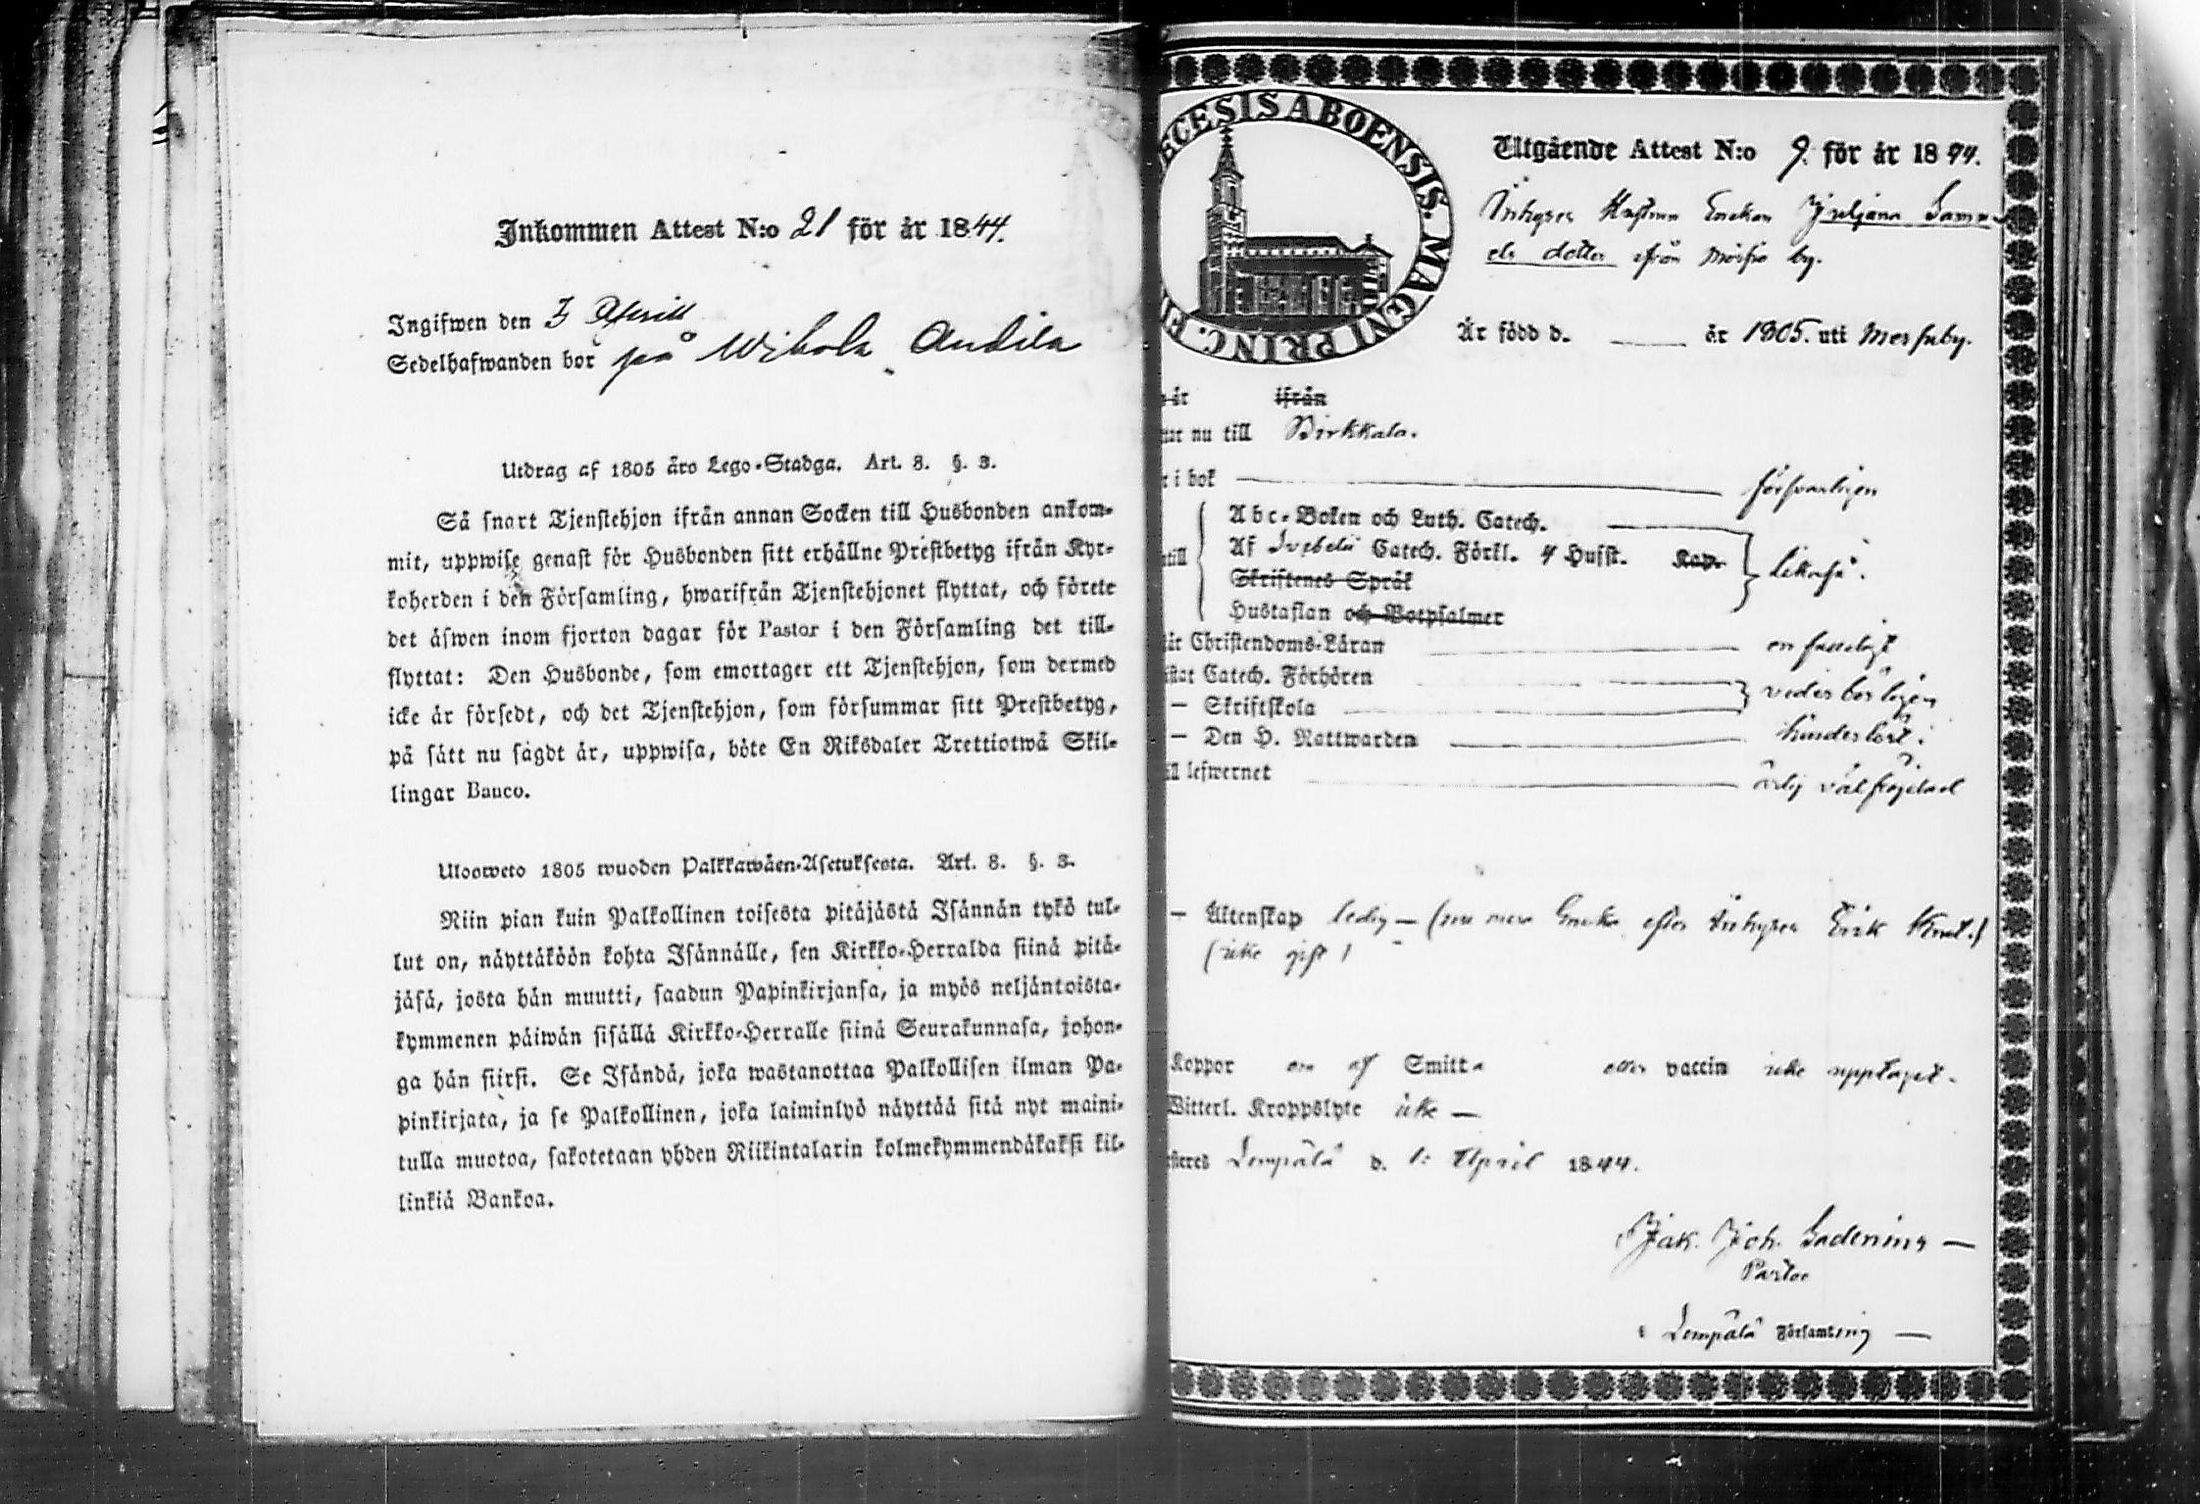 Inkommen Attest N:o 21 för år 1844.
Ingifwen den 3 April
Sedelhafwanden bor på Wikola Andila
Utdrag af 1805 års Lego-Stadga. Art. 8. §. 3.
Så snart Tjenstehjon ifrån annan Socken till Husbonden ankom-
mit, uppwise genast för Husbonden sitt erhållne Prestbetyg ifrån Kyr-
koherden i den Församling, hwarifrån Tjenstehjonet flyttat, och förete
det äfwen inom fjorton dagar för Pastor i den Församling det till-
flyttat: Den Husbonde, som emottager ett Tjenstehjon, som dermed
icke är försedt, och det Tjenstehjon, som försummar sitt Prestbetyg,
på sätt nu sagdt är, uppwisa, böte En Riksdaler Trettiotwå Skil-
lingar Banco.
Ulosweto 1805 wuoden Palkkawäen-Asetuksesta. Art. 8. §. 3.
Niin pian kuin Palkollinen toisesta pitäjästä Isännän tykö tul-
lut on, näyttäköön kohta Isännälle, sen Kirkko-Herralda siinä pitä-
jäsä, josta hän muutti, saadun Papinkirjansa, ja myös neljäntoista-
kymmenen päiwän sisällä Kirkko-Herralle siinä Seurakunnasa, johon-
ga hän siirsi. Se Isändä, joka wastanottaa Palkollisen ilman Pa-
pinkirjata, ja se Palkollinen, joka laiminlyö näyttää sitä nyt maini-
tulla muotoa, sakotetaan yhden Riikintalarin kolmekymmendäkaksi kil-
linkiä Bankoa.
ECESIS ABOENSIS. MAGNI PRINC. FI
Utgående Attest N:o 9. för år 1844.
Inhyses Enekan Juljana Samu
els dotter ifrån by.
Är född d. år 1805. uti
år ifrån
nu till Birkkala.
i bok försvarligen
Abc-Boken och Luth. Catech.
till Af Svebelii Catech. Förkl. 4 Husst. Kap. likaså.
Skriftenes Språk
Hustaflan och Botpsalmer
Christendoms-Läran enfaldigt
Catech. Förhören
— Skriftskola vederbörligen
— Den H. Nattwarden hinderlöst.
lefwernet ärlig välfrejdad
— Äktenskap ledig — ( mera Enka efter Inhyses Erik )
(icke gift)
Koppor af Smitta eller vaccin icke upptaget.
Witterl. Kroppslyte icke —
Lempälä d. 1: April 1844.
Jak. Joh.
Pastor
i Lempälä Församling —